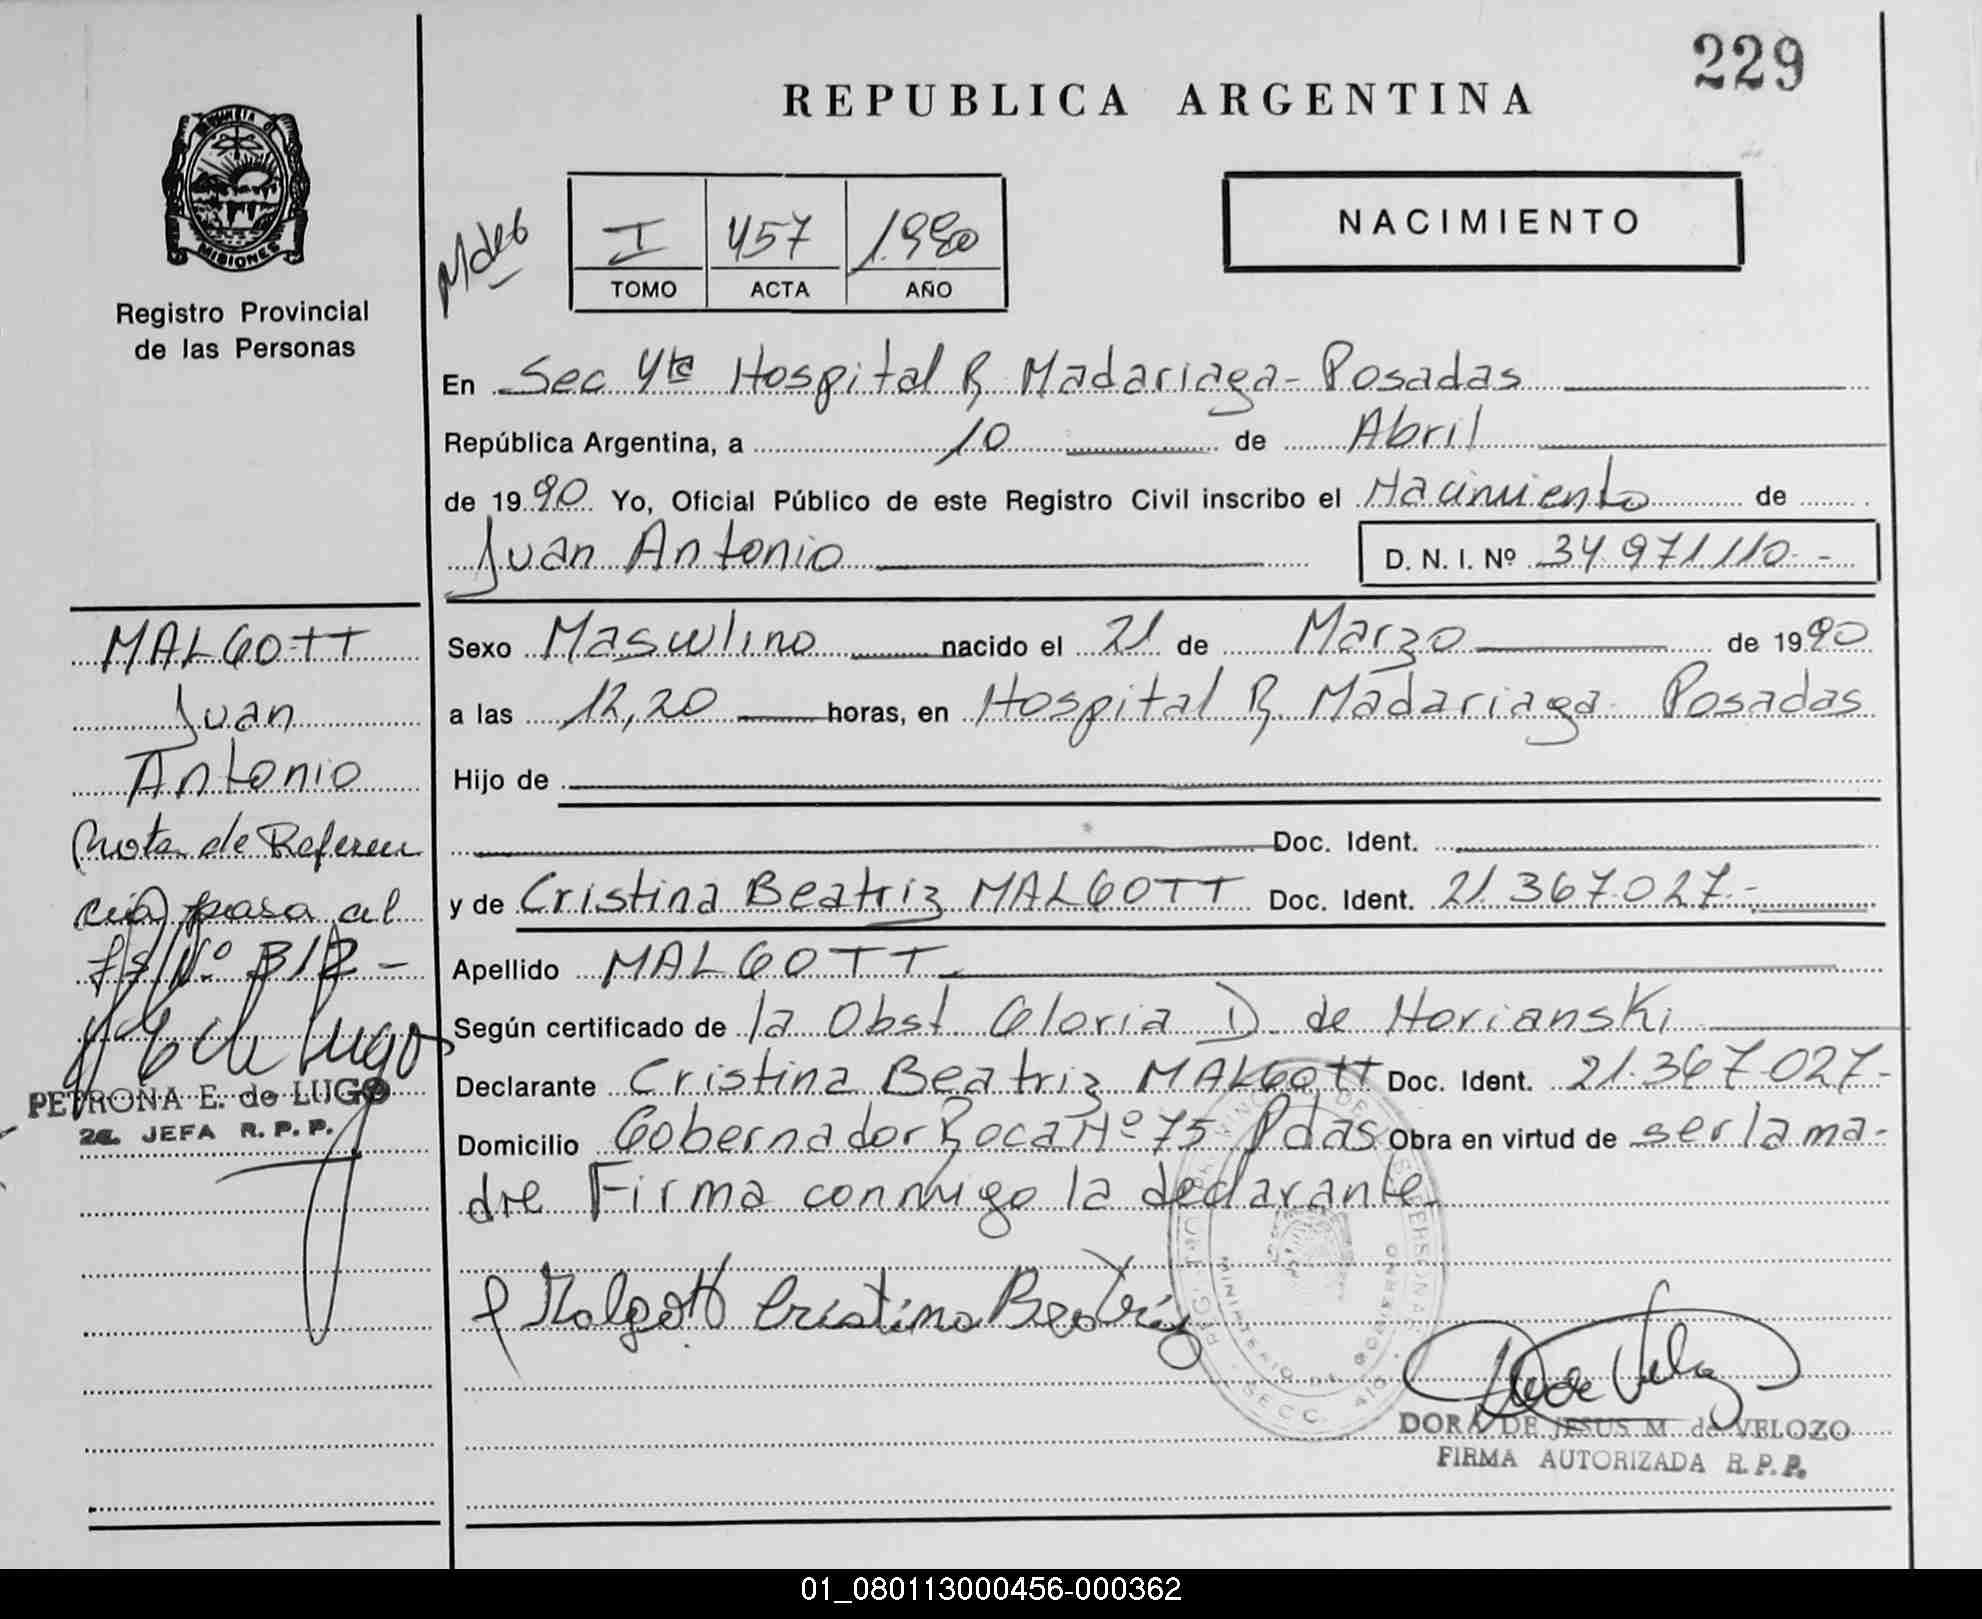 229
REPUBLICA ARGENTINA
PROVINCIA D
MISIONES
Registro Provincial
de las Personas
NACIMIENTO
I 457 1.990
TOMO ACTA AÑO
En Sec 4ta Hospital R. Madariaga - Posadas
República Argentina, a 10 de Abril
de 1990 Yo, Oficial Público de este Registro Civil inscribo el Nacimiento de
Juan Antonio D. N. I. Nº 34.971.110.-
MALGOTT
Juan
Antonio
Nota de Referen
cia pasa al
PETRONA E. de LUGO
2a. JEFA R. P. P.
Sexo Masculino nacido el 21 de Marzo de 1990
a las 12,20 horas, en Hospital R. Madariaga Posadas
Hijo de
Doc. Ident.
y de Cristina Beatriz MALGOTT Doc. Ident. 21.367.027.-
Apellido MALGOTT.
Según certificado de la Obst Gloria D. de Horianski
Declarante Cristina Beatriz MALGOTT Doc. Ident. 21.367.027-
Domicilio Gobernador Roca Nº 75 Pdas Obra en virtud de ser la ma-
dre Firma conmigo la declarante.
Malgott Cristina Beatriz
MINISTERIO DE GOBIERNO
SECC. 4ta
DORA DE JESUS M. de VELOZO
FIRMA AUTORIZADA R. P. P.
01_080113000456-000362